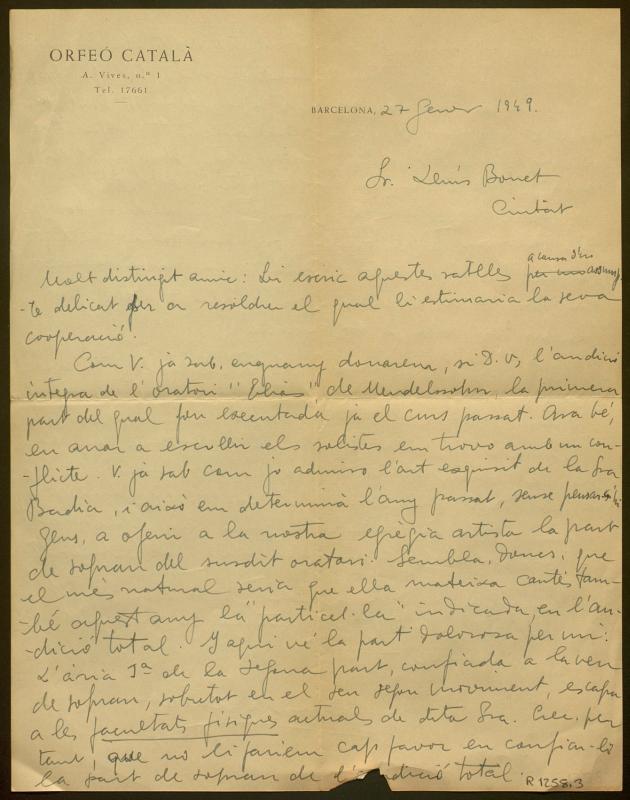 ORFEÓ CATALÀ
A. Vives, n.º 1
Tel. 17661
BARCELONA, 27 Gener 1949.
Sr. Lluís Bonet
Ciutat
a causa d'un
Molt distingit amic: Li escric aquestes ratlles per uns assump-
-te delicat per a resoldre el qual li estimaria la seva
cooperació.
Com V. ja sab, enguany donarem, si D. v, l'audició
íntegra de l'oratori "Elias" de Mendelssohn, la primera
part del qual fou executada ja el curs passat. Ara bé,
en anar a escollir els solistes em trovo amb un con-
-flicte. V. ja sab com jo admiro l'art exquisit de la Sra
Badia, i això em determinà l'any passat, sense pensar-s'hi
gens, a oferir a la nostra egrègia artista la part
de sopran del susdit oratori. Sembla, doncs, que
el més natural seria que ella mateixa cantés tam-
-bé aquest any la "particel·la" indicada, en l'au-
-dició total. I aquí ve la part dolorosa per mi:
L'ària 1ª de la segona part, confiada a la veu
de sopran, sobretot en el seu segon moviment, escapa
a les facultats físiques actuals de dita Sra. Crec, per
tant, que no li fariem cap favor en confiar-li
la part de sopran de l'audició total.
R 1258.3